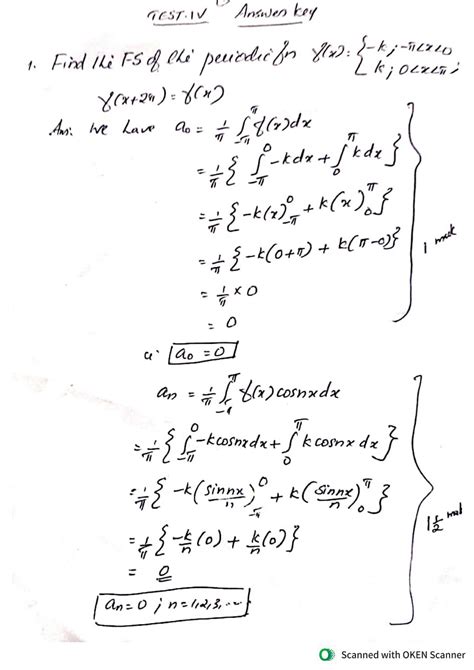 TEST-IV Answer key
1. Find the FS of the periodic fn f(x) = {-k ; -π<x<0
k ; 0<x<π ;
f(x+2π) = f(x)
Ans: We have a₀ = 1/π ∫_{-π}^{π} f(x)dx
= 1/π { ∫_{-π}^{0} -k dx + ∫_{0}^{π} k dx }
= 1/π { -k(x)_{-π}^{0} + k(x)_{0}^{π} }
= 1/π { -k(0+π) + k(π-0) }
1 mark
= 1/π × 0
= 0
a₀ = 0
aₙ = 1/π ∫_{-π}^{π} f(x) cosnx dx
= 1/π { ∫_{-π}^{0} -k cosnx dx + ∫_{0}^{π} k cosnx dx }
= 1/π { -k (sinnx/n)_{-π}^{0} + k (sinnx/n)_{0}^{π} }
1 1/2 mark
= 1/π { -k/n (0) + k/n (0) }
= 0
aₙ = 0 ; n = 1,2,3, ...
Scanned with OKEN Scanner